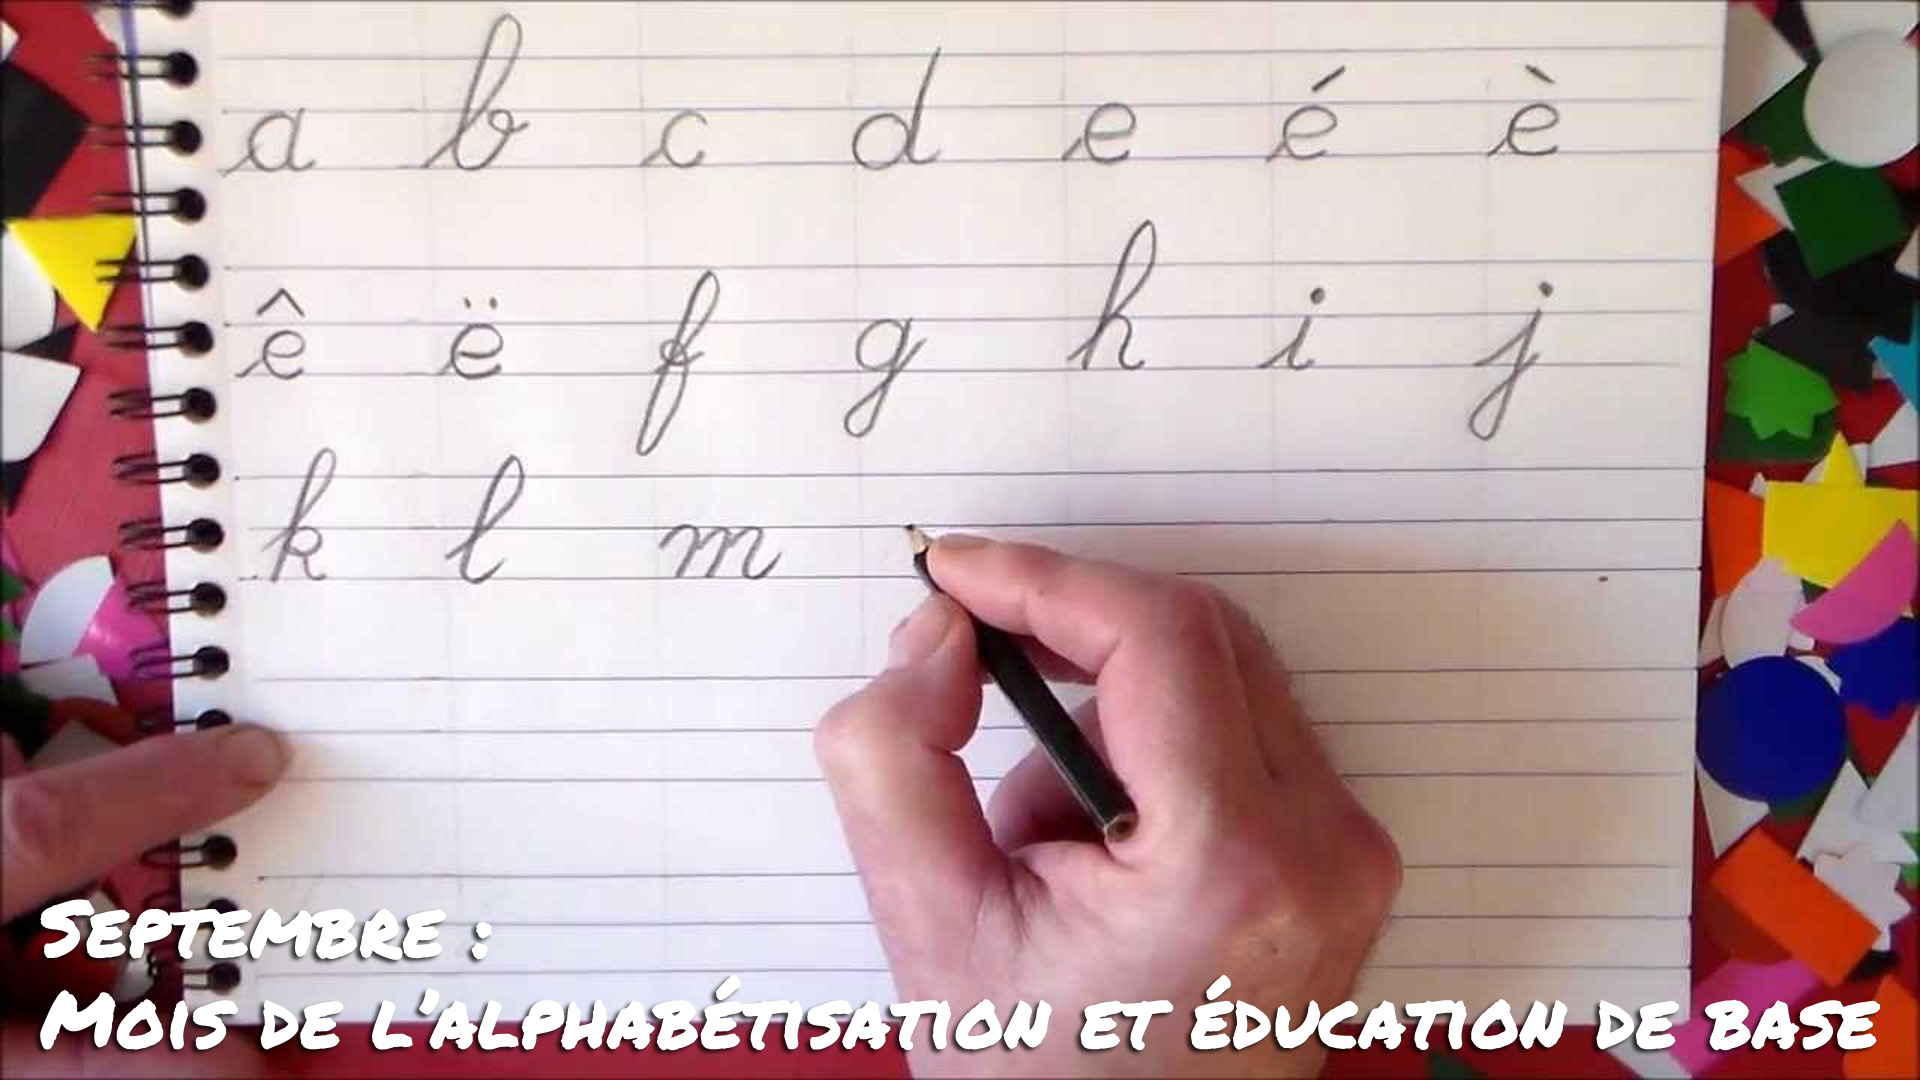 a b c d e é è
ê ë f g h i j
k l m
Septembre :
Mois de l'alphabétisation et éducation de base